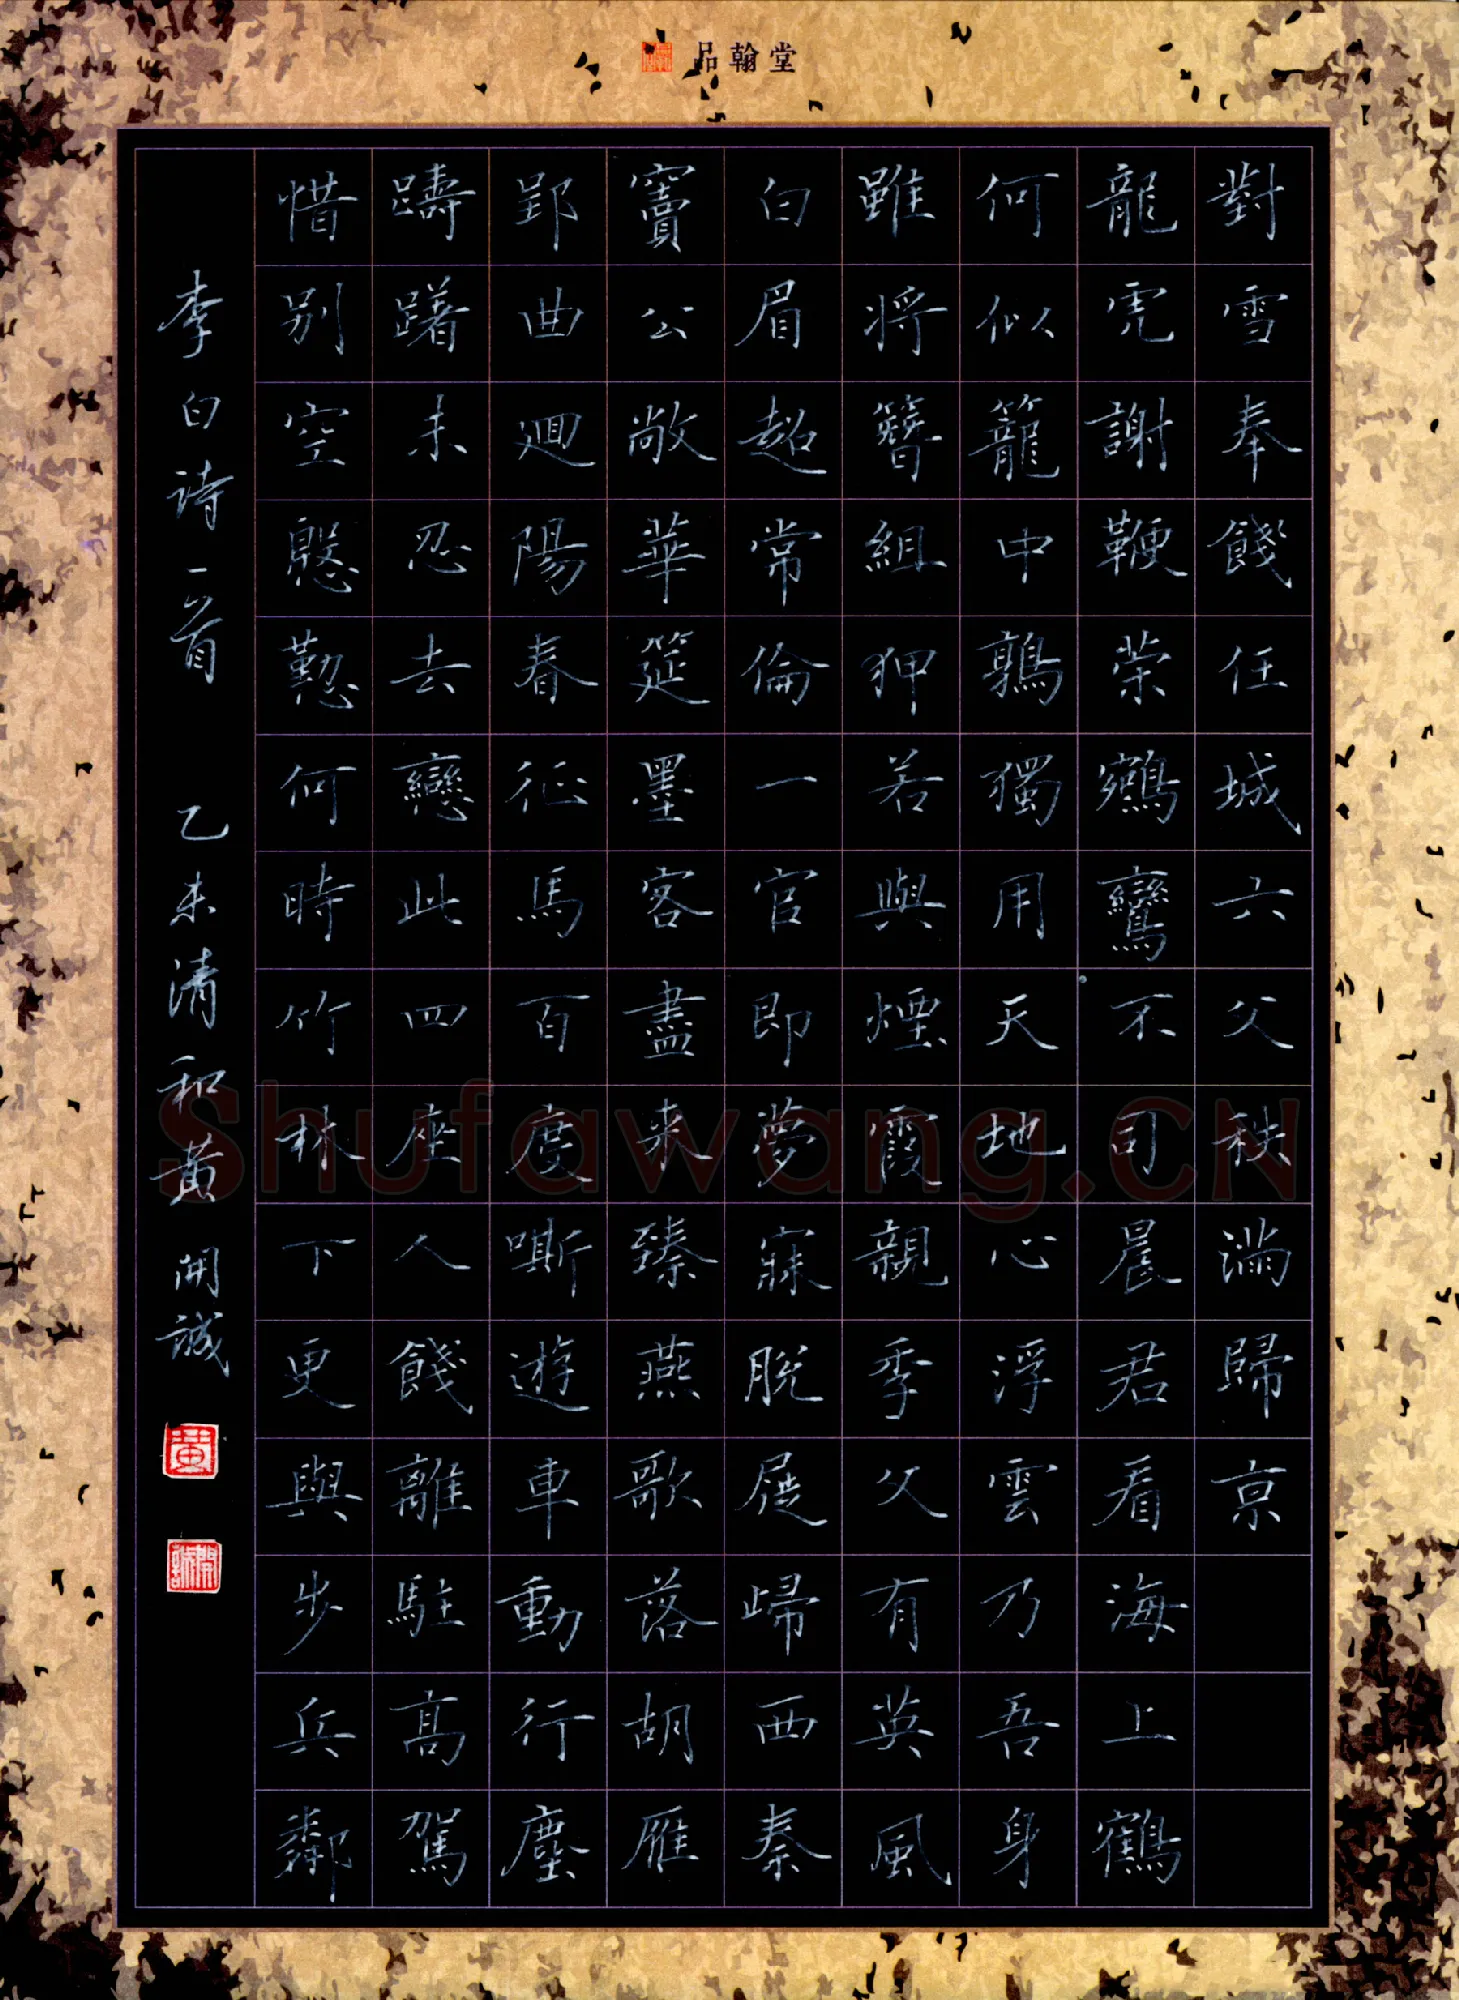 品翰堂
對雪奉餞任城六父秩滿歸京
龍虎謝鞭策鵷鸞不司晨君看海上鶴
何似籠中鶉獨用天地心浮雲乃吾身
雖將簪組狎若與煙霞親季父有英風
白眉超常倫一官即夢寐脫屣歸西秦
竇公敞華筵墨客盡来臻燕歌落胡雁
郢曲迴陽春征馬百度嘶遊車動行塵
躊躇未忍去戀此四座人餞離駐高駕
惜別空慇懃何時竹林下更與步兵鄰
李白诗一首 乙未清和黄開誠
黄
開誠
Shufawang.CN